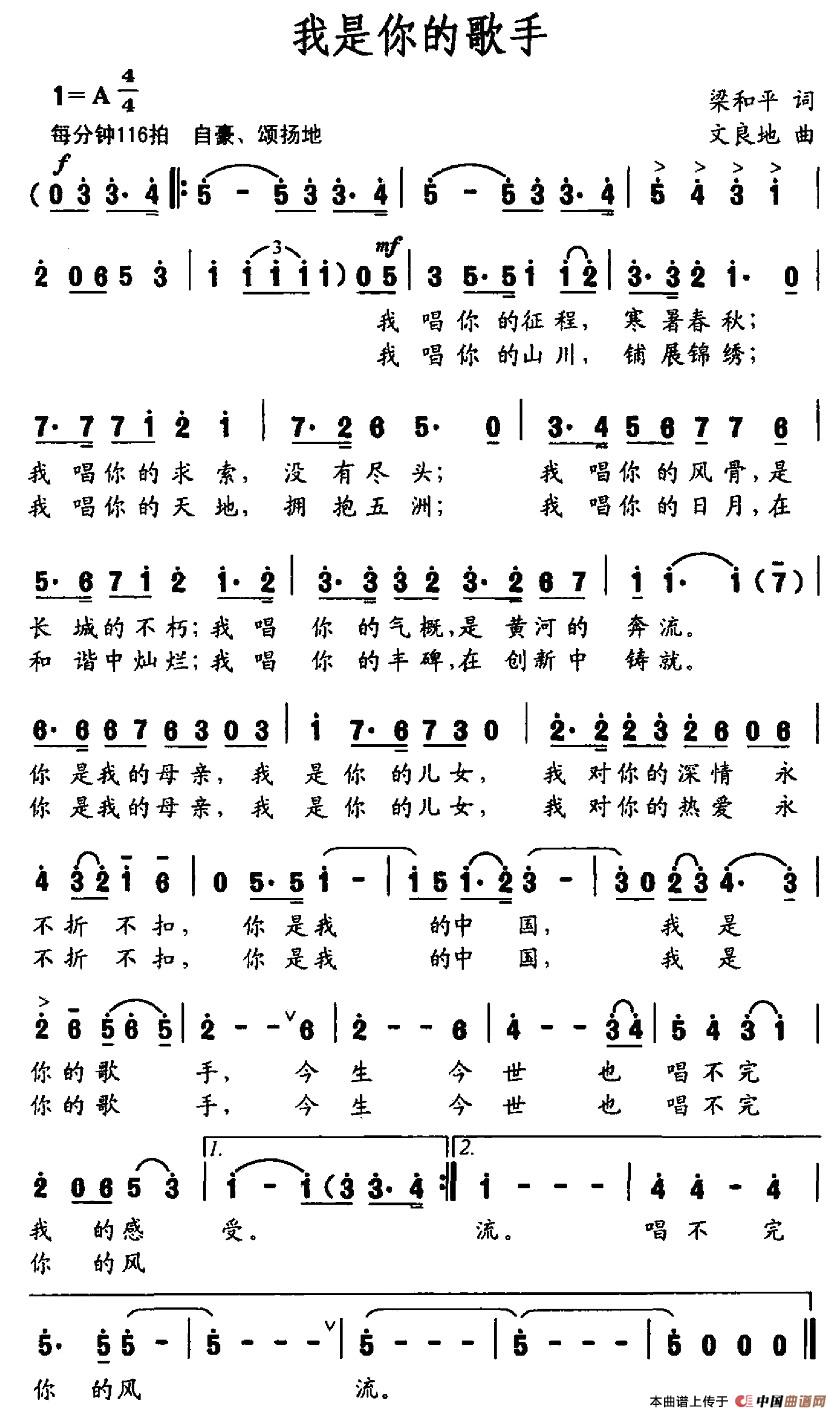 我是你的歌手
1=A 4/4
梁和平 词
每分钟116拍 自豪、颂扬地
文良地 曲
f
(0 3 3· 4 ‖: 5 - 5 3 3· 4 | 5 - 5 3 3· 4 | 5 4 3 1 |
3 mf
2 0 6 5 3 | 1 1 1 1 1) 0 5 | 3 5· 5 1 1 2 | 3· 3 2 1· 0 |
我 唱你 的征程, 寒暑春秋;
我 唱你 的山川, 铺展锦绣;
7· 7 7 1 2 1 | 7· 2 6 5· 0 | 3· 4 5 6 7 7 6 |
我 唱你的求索, 没有尽头; 我 唱你的风骨,是
我 唱你的天地, 拥抱五洲; 我 唱你的日月,在
5· 6 7 1 2 1· 2 | 3· 3 3 2 3· 2 6 7 | 1 1· 1 (7) |
长城的不朽;我唱 你的气概,是黄河的 奔流。
和谐中灿烂;我唱 你的丰碑,在创新中 铸就。
6· 6 6 7 6 3 0 3 | 1 7· 6 7 3 0 | 2· 2 2 3 2 6 0 6 |
你是我的母亲,我 是你的儿女, 我对你的深情 永
你是我的母亲,我 是你的儿女, 我对你的热爱 永
4 3 2 1 6 | 0 5· 5 1 - | 1 5 1· 2 3 - | 3 0 2 3 4· 3 |
不折不扣, 你是我 的中国, 我是
不折不扣, 你是我 的中国, 我是
2 6 5 6 5 | 2 - - 6 | 2 - - 6 | 4 - - 3 4 | 5 4 3 1 |
你的歌 手, 今生 今世 也 唱不完
你的歌 手, 今生 今世 也 唱不完
1. 2.
2 0 6 5 3 | 1 - 1 (3 3· 4 :‖ 1 - - - | 4 4 - 4 |
我 的感 受。 流。 唱不 完
你 的风
5· 5 5 - | 5 - - - | 5 - - - | 5 - - - | 5 0 0 0 ‖
你 的风 流。
本曲谱上传于 中国曲谱网